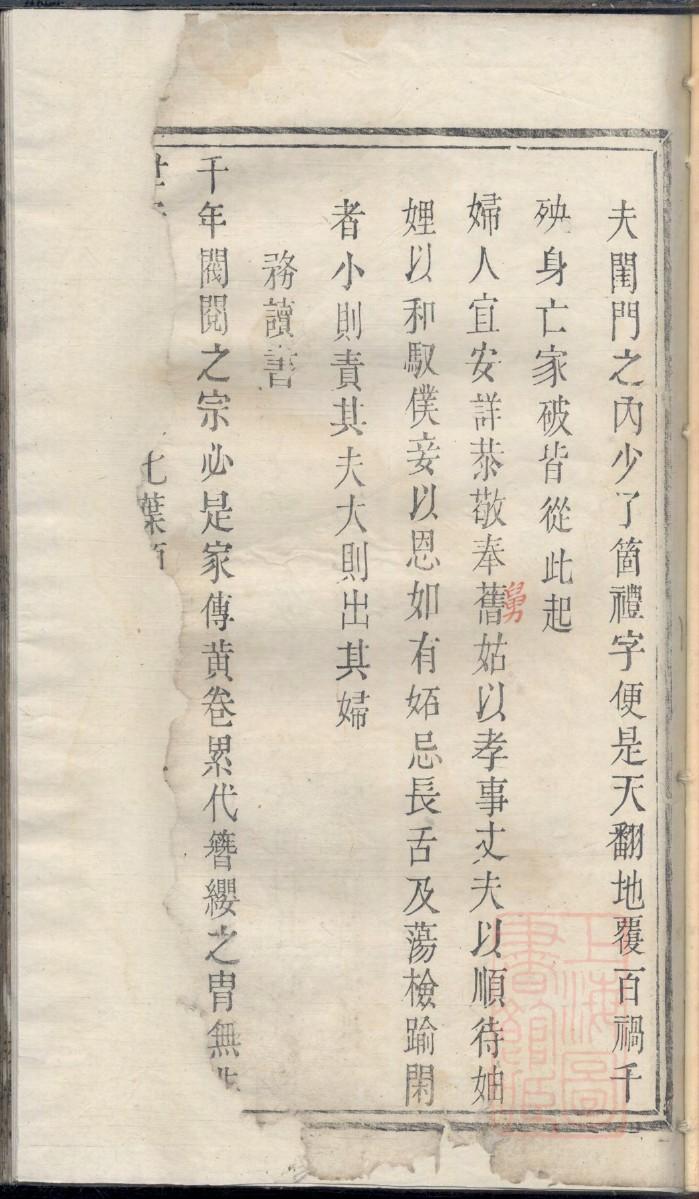 夫閨門之內少了箇禮字便是天翻地覆百禍千
殃身亡家破皆從此起
婦人宜安詳恭敬奉舊姑以孝事丈夫以順待妯
舅
娌以和馭僕妾以恩如有妬忌長舌及蕩檢踰閑
者小則責其夫大則出其婦
務讀書
千年閥閱之宗必是家傳黄卷累代簪纓之胄無
七葉
上海圖書館藏